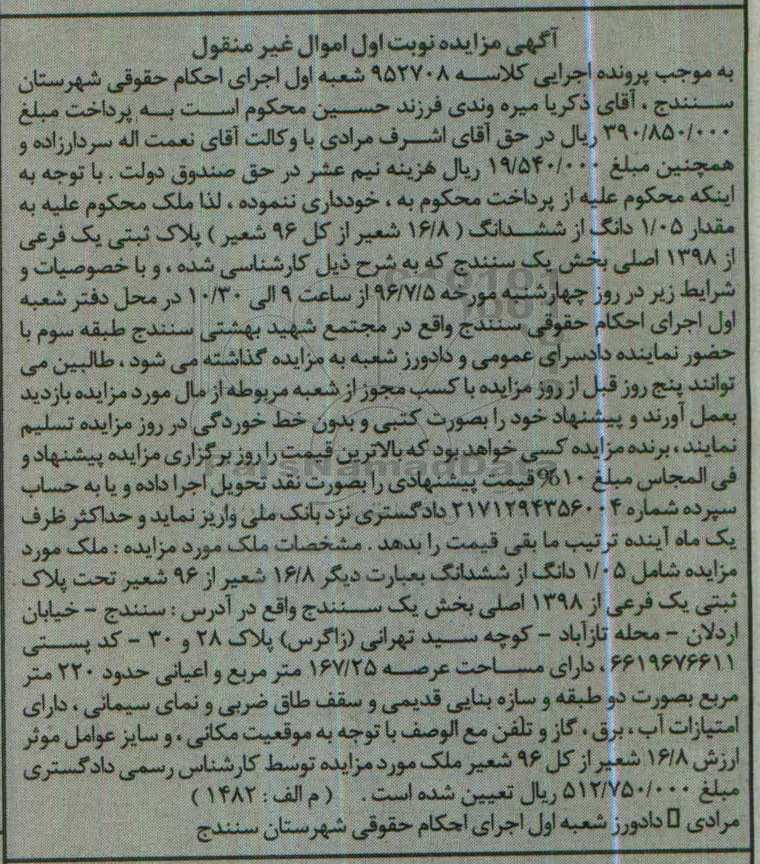 آگهی مزایده نوبت اول اموال غیر منقول
به موجب پرونده اجرایی کلاسه ۹۵۲۷۰۸ شعبه اول اجرای احکام حقوقی شهرستان
سنندج ، آقای ذکریا میره وندی فرزند حسین محکوم است به پرداخت مبلغ
۳۹۰/۸۵۰/۰۰۰ ریال در حق آقای اشرف مرادی با وکالت آقای نعمت اله سردارزاده و
همچنین مبلغ ۱۹/۵۴۰/۰۰۰ ریال هزینه نیم عشر در حق صندوق دولت . با توجه به
اینکه محکوم علیه از پرداخت محکوم به ، خودداری ننموده ، لذا ملک محکوم علیه به
مقدار ۱/۰۵ دانگ از ششدانگ ( ۱۶/۸ شعیر از کل ۹۶ شعیر ) پلاک ثبتی یک فرعی
از ۱۳۹۸ اصلی بخش یک سنندج که به شرح ذیل کارشناسی شده ، و با خصوصیات و
شرایط زیر در روز چهارشنبه مورخه ۹۶/۷/۵ از ساعت ۹ الی ۱۰/۳۰ در محل دفتر شعبه
اول اجرای احکام حقوقی سنندج واقع در مجتمع شهید بهشتی سنندج طبقه سوم با
حضور نماینده دادسرای عمومی و دادورز شعبه به مزایده گذاشته می شود ، طالبین می
توانند پنج روز قبل از روز مزایده با کسب مجوز از شعبه مربوطه از مال مورد مزایده بازدید
بعمل آورند و پیشنهاد خود را بصورت کتبی و بدون خط خوردگی در روز مزایده تسلیم
نمایند ، برنده مزایده کسی خواهد بود که بالاترین قیمت را روز برگزاری مزایده پیشنهاد و
فی المجلس مبلغ ۱۰% قیمت پیشنهادی را بصورت نقد تحویل اجرا داده و یا به حساب
سپرده شماره ۲۱۷۱۲۹۴۳۵۶۰۰۴ دادگستری نزد بانک ملی واریز نماید و حداکثر ظرف
یک ماه آینده ترتیب ما بقی قیمت را بدهد . مشخصات ملک مورد مزایده : ملک مورد
مزایده شامل ۱/۰۵ دانگ از ششدانگ بعبارت دیگر ۱۶/۸ شعیر از ۹۶ شعیر تحت پلاک
ثبتی یک فرعی از ۱۳۹۸ اصلی بخش یک سنندج واقع در آدرس : سنندج - خیابان
اردلان - محله تازآباد - کوچه سید تهرانی (زاگرس) پلاک ۲۸ و ۳۰ - کد پستی
۶۶۱۹۶۷۶۶۱۱ ، دارای مساحت عرصه ۱۶۷/۲۵ متر مربع و اعیانی حدود ۲۲۰ متر
مربع بصورت دو طبقه و سازه بنایی قدیمی و سقف طاق ضربی و نمای سیمانی ، دارای
امتیازات آب ، برق ، گاز و تلفن مع الوصف با توجه به موقعیت مکانی ، و سایز عوامل موثر
ارزش ۱۶/۸ شعیر از کل ۹۶ شعیر ملک مورد مزایده توسط کارشناس رسمی دادگستری
مبلغ ۵۱۲/۷۵۰/۰۰۰ ریال تعیین شده است . ( م الف : ۱۴۸۲ )
مرادی 🮕 دادورز شعبه اول اجرای احکام حقوقی شهرستان سنندج